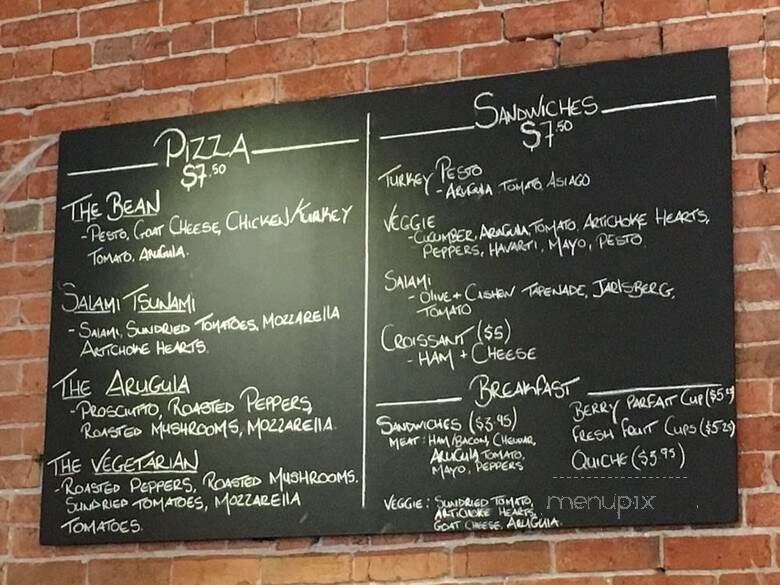 PIZZA
$7.50
THE BEAN
-PESTO, GOAT CHEESE, CHICKEN/TURKEY
TOMATO, ARUGULA.
SALAMI TSUNAMI
- SALAMI, SUNDRIED TOMATOES, MOZZARELLA
ARTICHOKE HEARTS.
THE ARUGULA
-PROSCIUTTO, ROASTED PEPPERS,
ROASTED MUSHROOMS, MOZZARELLA.
THE VEGETARIAN
-ROASTED PEPPERS, ROASTED MUSHROOMS.
SUNDRIED TOMATOES, MOZZARELLA
TOMATOES.
SANDWICHES
$7.50
TURKEY PESTO
- ARUGULA TOMATO, ASIAGO
VEGGIE
-CUCUMBER, ARUGULA, TOMATO, ARTICHOKE HEARTS,
PEPPERS, HAVARTI, MAYO, PESTO.
SALAMI
- OLIVE + CASHEW TAPENADE, JARLSBERG,
TOMATO
CROISSANT ($5)
- HAM + CHEESE
BREAKFAST
SANDWICHES ($3.95)
MEAT: HAM/BACON, CHEDDAR,
ARUGULA TOMATO,
MAYO, PEPPERS
VEGGIE: SUNDRIED TOMATO,
ARTICHOKE HEARTS,
GOAT CHEESE, ARUGULA.
BERRY PARFAIT CUP
FRESH FRUIT CUPS ($5.25)
QUICHE ($3.95)
menupix